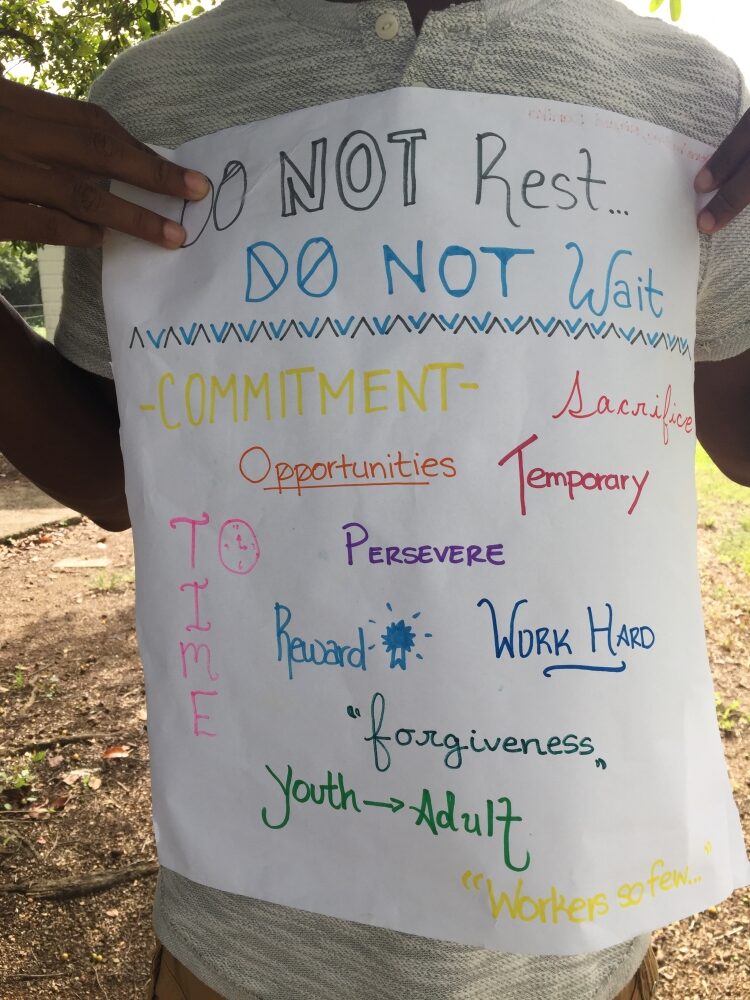 DO NOT Rest...
DO NOT Wait
-COMMITMENT-
Sacrifice
Opportunities
Temporary
TIME
PERSEVERE
Reward
WORK HARD
"forgiveness"
Youth → Adult
"Workers so few..."